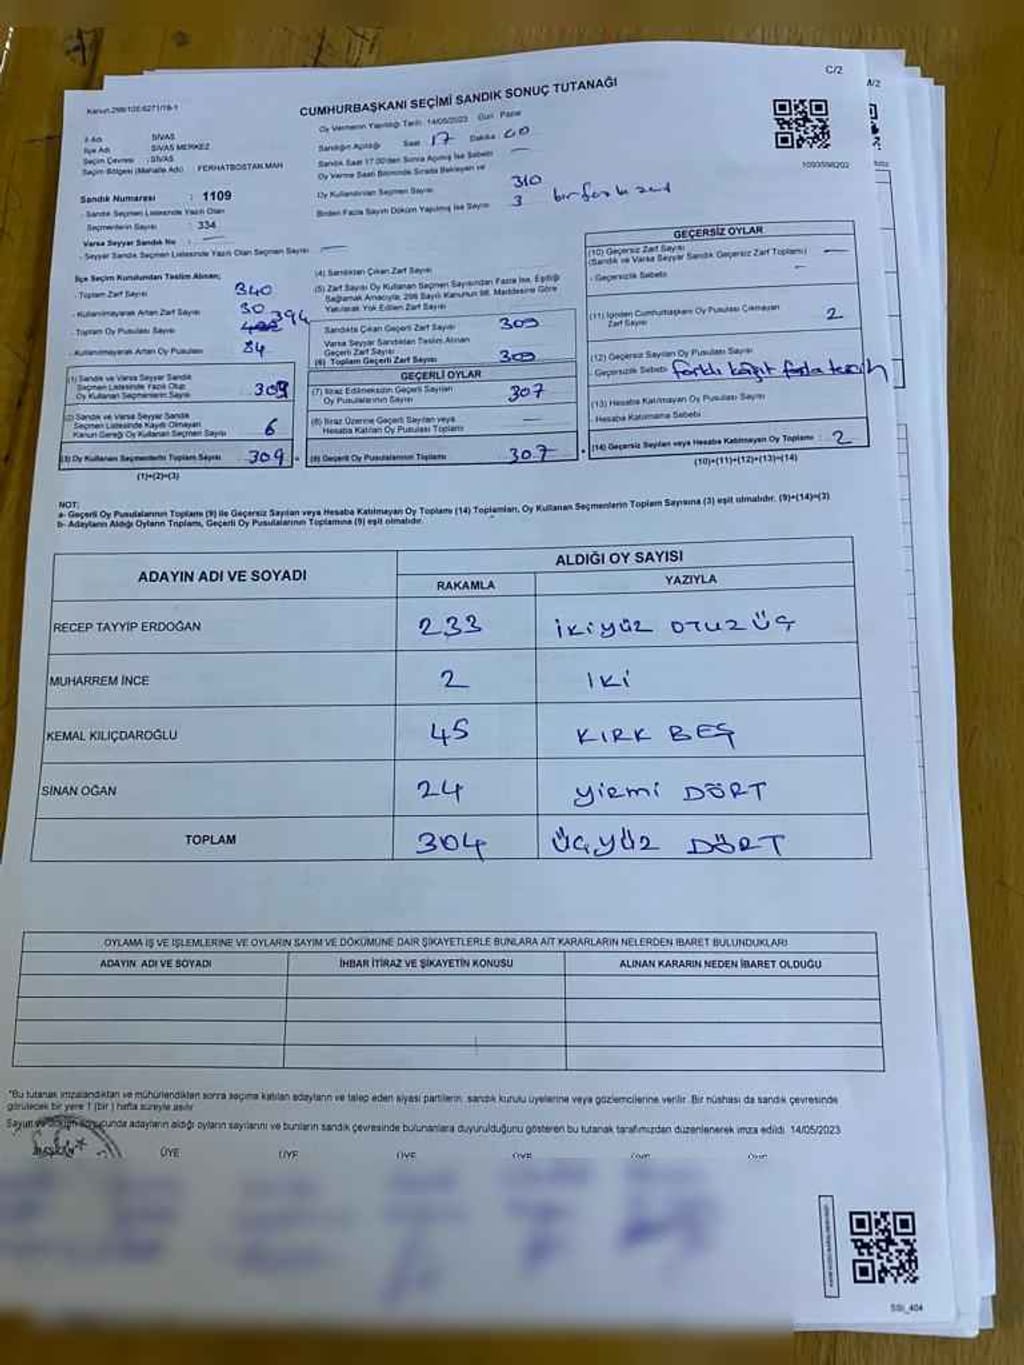 C/2
A/2
CUMHURBAŞKANI SEÇİMİ SANDIK SONUÇ TUTANAĞI
İl Adı SİVAS
İlçe Adı SİVAS MERKEZ
Seçim Çevresi : SİVAS
Seçim Bölgesi (Mahalle Adı) : FERHATBOSTAN MAH
Sandık Numarası : 1109
- Sandık Seçmen Listesinde Yazılı Olan
Seçmenlerin Sayısı : 334
Varsa Seyyar Sandık No :
- Seyyar Sandık Seçmen Listesinde Yazılı Olan Seçmen Sayısı
Oy Vermenin Yapıldığı Tarih : 14/05/2023 Gün : Pazar
Sandığın Açıldığı Saat 17 Dakika : 00
Sandık Saat 17:00'den Sonra Açılmış İse Sebebi
Oy Verme Saati Bitiminde Sırada Bekleyen ve
Oy Kullandırılan Seçmen Sayısı 310
Birden Fazla Sayım Döküm Yapılmış İse Sayısı 3
1093598202
İlçe Seçim Kurulundan Teslim Alınan;
- Toplam Zarf Sayısı 340
- Kullanılmayarak Artan Zarf Sayısı 30
- Toplam Oy Pusulası Sayısı 394
- Kullanılmayarak Artan Oy Pusulası 84
(1) Sandık ve Varsa Seyyar Sandık
Seçmen Listesinde Yazılı Olup
Oy Kullanan Seçmenlerin Sayısı 303
(2) Sandık ve Varsa Seyyar Sandık
Seçmen Listesinde Kaydı Olmayan
Kanun Gereği Oy Kullanan Seçmen Sayısı 6
(3) Oy Kullanan Seçmenlerin Toplam Sayısı 309
(1)+(2)=(3)
(4) Sandıktan Çıkan Zarf Sayısı
(5) Zarf Sayısı Oy Kullanan Seçmen Sayısından Fazla İse, Eşitliği
Sağlamak Amacıyla, 298 Sayılı Kanunun 98. Maddesine Göre
Yakılarak Yok Edilen Zarf Sayısı
Sandıkta Çıkan Geçerli Zarf Sayısı 309
Varsa Seyyar Sandıktan Teslim Alınan
Geçerli Zarf Sayısı
(6) Toplam Geçerli Zarf Sayısı 309
GEÇERLİ OYLAR
(7) İtiraz Edilmeksizin Geçerli Sayılan
Oy Pusulalarının Sayısı 307
(8) İtiraz Üzerine Geçerli Sayılan veya
Hesaba Katılan Oy Pusulası Toplamı
(9) Geçerli Oy Pusulalarının Toplamı 307
GEÇERSİZ OYLAR
(10) Geçersiz Zarf Sayısı
(Sandık ve Varsa Seyyar Sandık Geçersiz Zarf Toplamı)
- Geçersizlik Sebebi
(11) İçinden Cumhurbaşkanı Oy Pusulası Çıkmayan
Zarf Sayısı 2
(12) Geçersiz Sayılan Oy Pusulası Sayısı
- Geçersizlik Sebebi farklı kağıt fazla tercih
(13) Hesaba Katılmayan Oy Pusulası Sayısı
- Hesaba Katılmama Sebebi
(14) Geçersiz Sayılan veya Hesaba Katılmayan Oy Toplamı : 2
(10)+(11)+(12)+(13)=(14)
NOT:
a- Geçerli Oy Pusulalarının Toplamı (9) ile Geçersiz Sayılan veya Hesaba Katılmayan Oy Toplamı (14) Toplamları, Oy Kullanan Seçmenlerin Toplam Sayısına (3) eşit olmalıdır. (9)+(14)=(3)
b- Adayların Aldığı Oyların Toplamı, Geçerli Oy Pusulalarının Toplamına (9) eşit olmalıdır.
ADAYIN ADI VE SOYADI ALDIĞI OY SAYISI
RAKAMLA YAZIYLA
RECEP TAYYİP ERDOĞAN 233 İKİYÜZ OTUZ ÜÇ
MUHARREM İNCE 2 İKİ
KEMAL KILIÇDAROĞLU 45 KIRK BEŞ
SİNAN OĞAN 24 YİRMİ DÖRT
TOPLAM 304 ÜÇYÜZ DÖRT
OYLAMA İŞ VE İŞLEMLERİNE VE OYLARIN SAYIM VE DÖKÜMÜNE DAİR ŞİKAYETLERLE BUNLARA AİT KARARLARIN NELERDEN İBARET BULUNDUKLARI
ADAYIN ADI VE SOYADI İHBAR İTİRAZ VE ŞİKAYETİN KONUSU ALINAN KARARIN NEDEN İBARET OLDUĞU
*Bu tutanak imzalandıktan ve mühürlendikten sonra seçime katılan adayların ve talep eden siyasi partilerin, sandık kurulu üyelerine veya gözlemcilerine verilir. Bir nüshası da sandık çevresinde
görülecek bir yere 1 (bir) hafta süreyle asılır.
Sayım ve döküm sonucunda adayların aldığı oyların sayılarını ve bunların sandık çevresinde bulunanlara duyurulduğunu gösteren bu tutanak tarafımızdan düzenlenerek imza edildi. 14/05/2023
ÜYE ÜYE ÜYE ÜYE ÜYE ÜYE
SSI_404